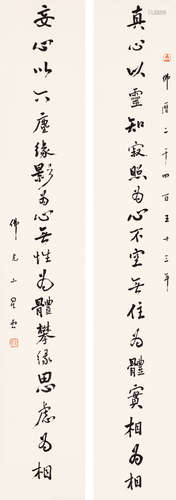 佛曆二千四百五十三年
真心以靈知寂照為心不空無住為體實相為相
妄心以六塵緣影為心無性為體攀緣思慮為相
佛光山星雲